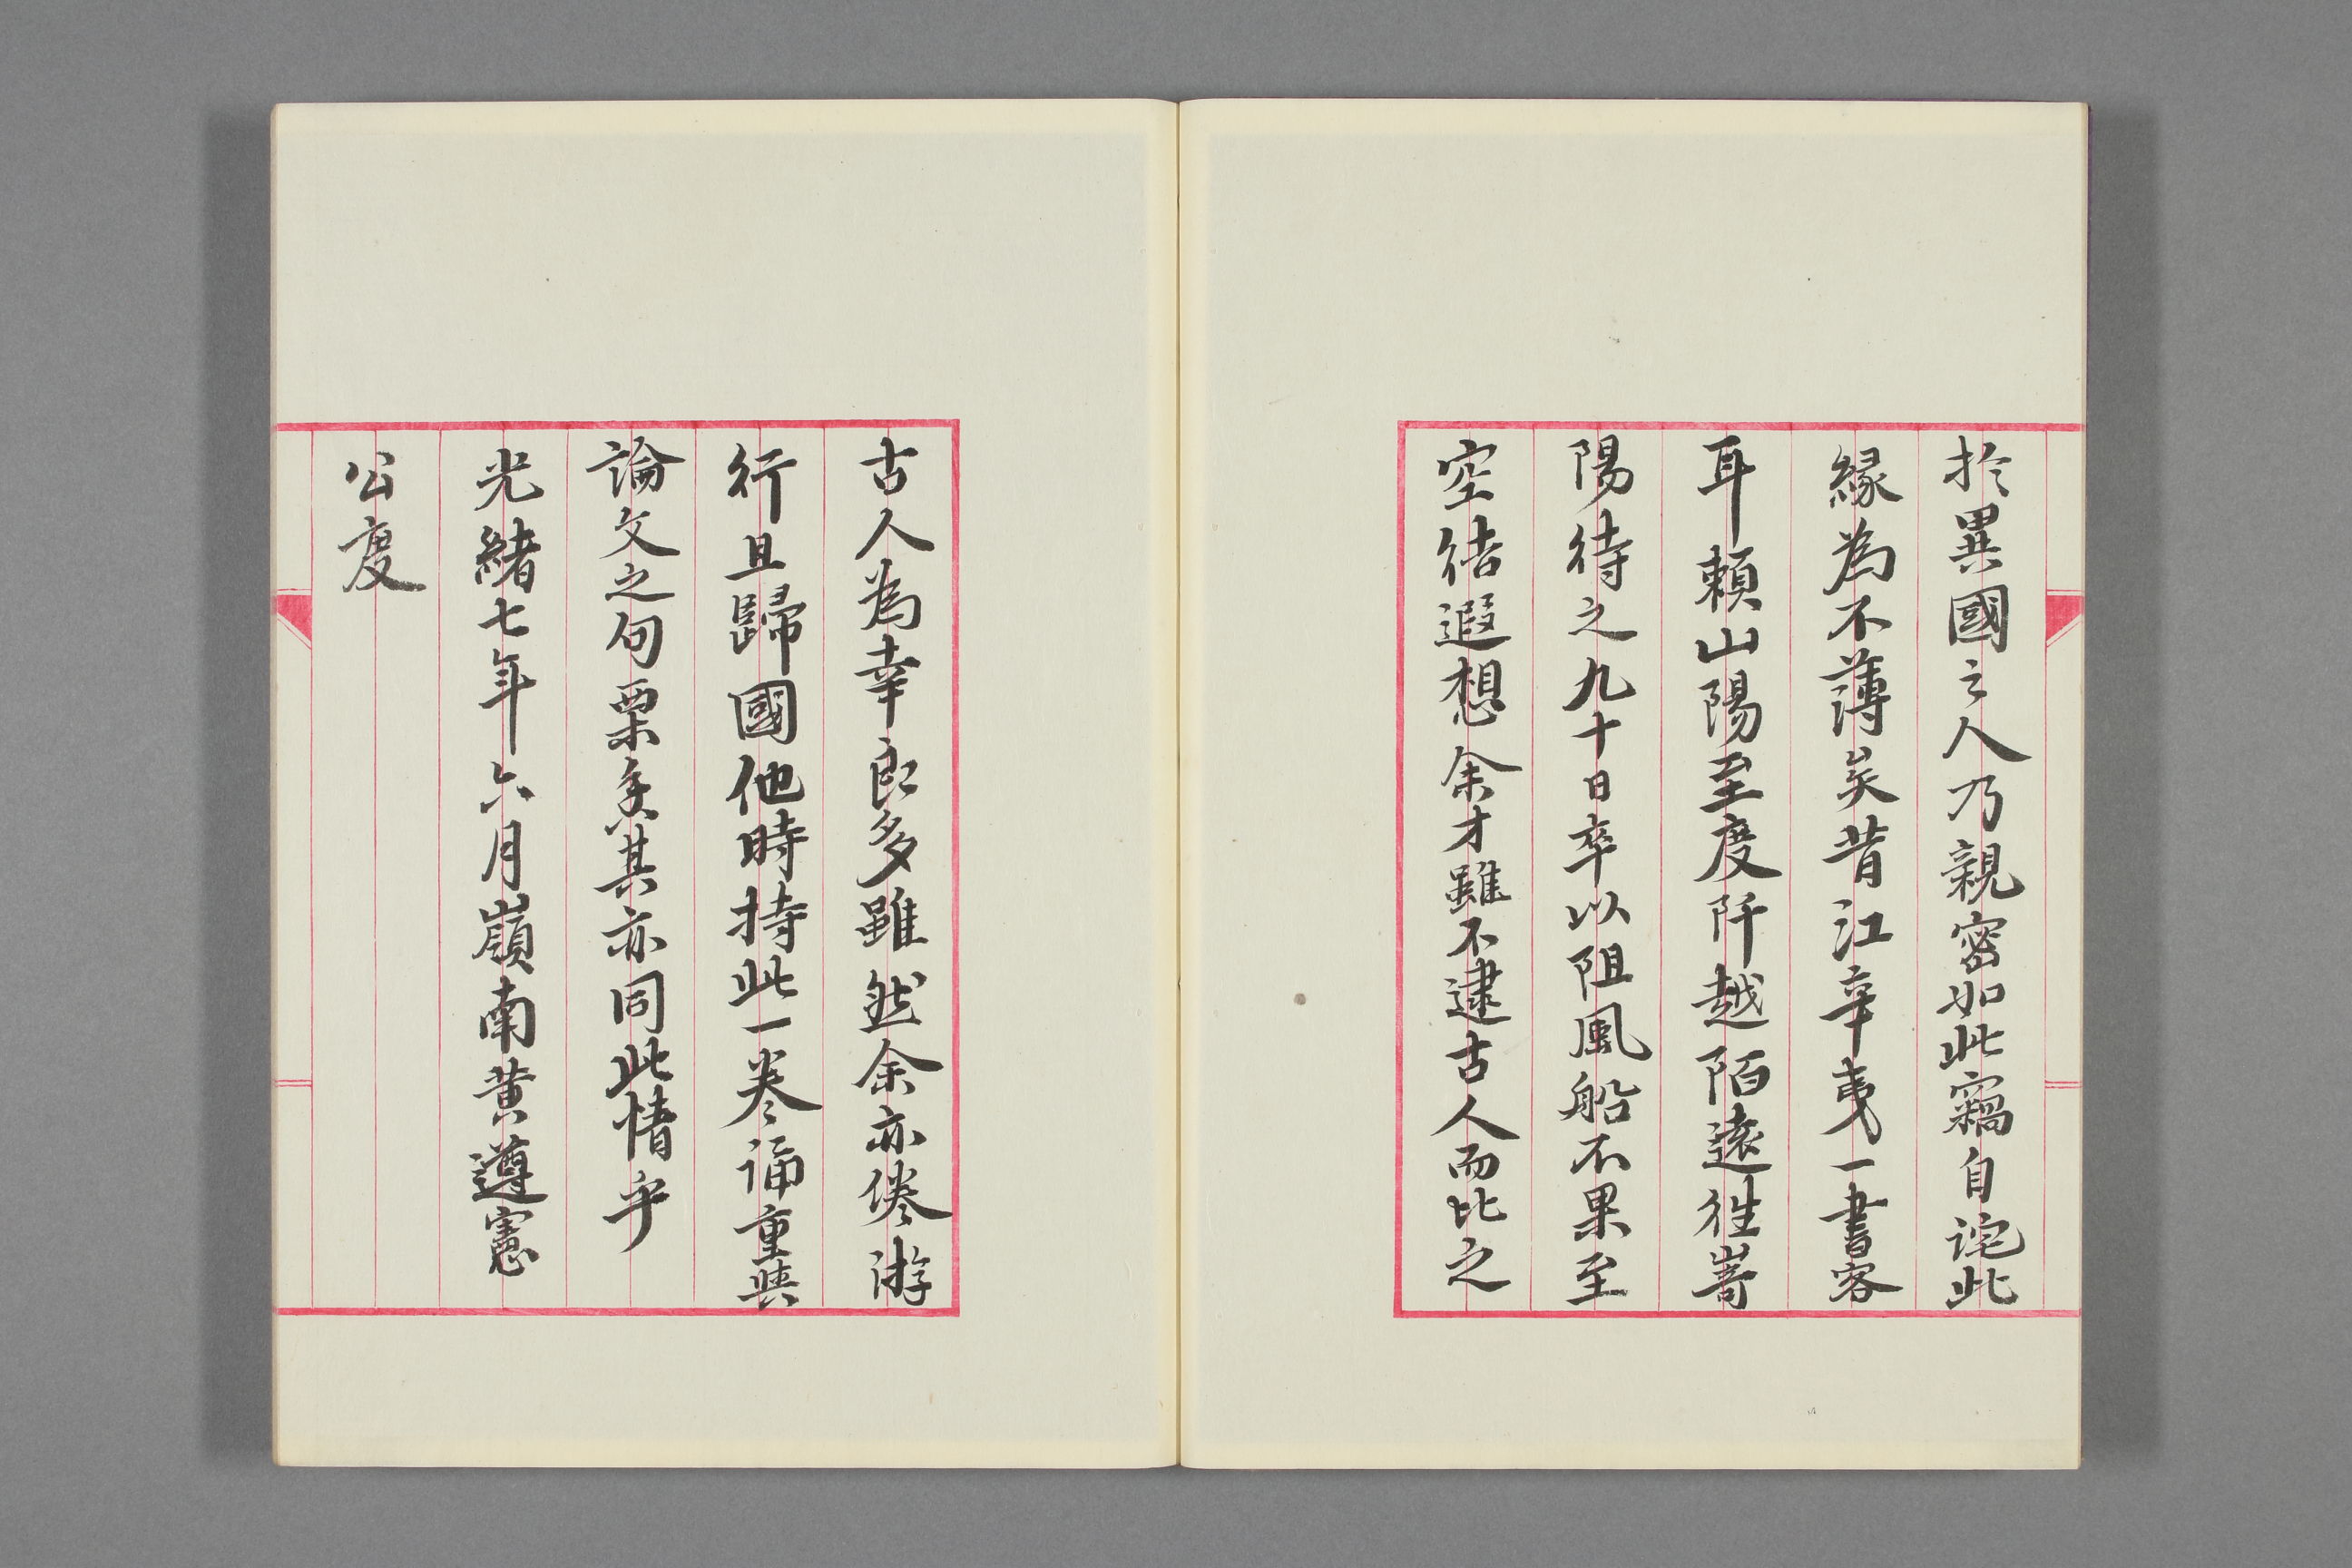 於異國之人乃親密如此竊自詫此
緣為不薄矣昔江辛夷一書客
耳賴山陽至度阡越陌遠往嵜
陽待之九十日卒以阻風船不果至
空結遐想余才雖不逮古人而比之
古人為幸良多雖然余亦倦游
行且歸國他時持此一卷誦重與
論文之句栗矣其亦同此情乎
光緒七年六月嶺南黃遵憲
公度